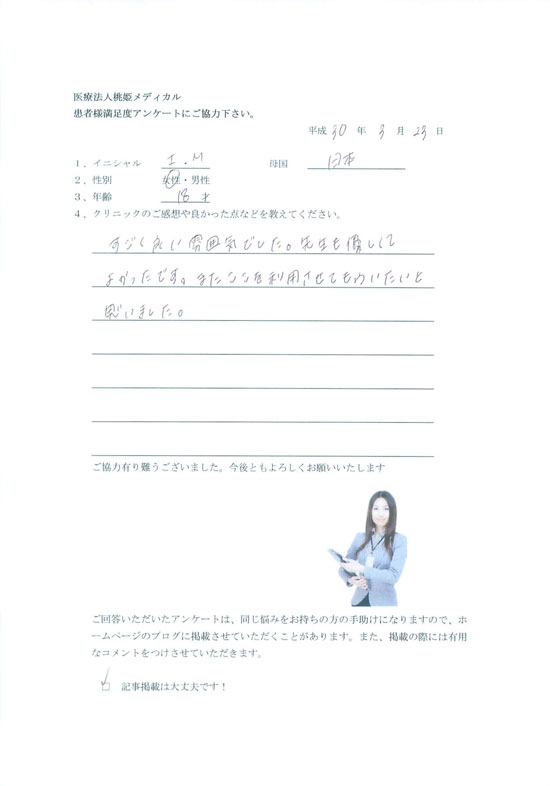 医療法人桃姫メディカル
患者様満足度アンケートにご協力下さい。
平成 30 年 3 月 23 日
1、イニシャル I.M 母国 日本
2、性別 女性・男性
3、年齢 18 才
4、クリニックのご感想や良かった点などを教えてください。
すごく良い雰囲気でした。先生も優しくて
よかったです。またここを利用させてもらいたいと
思いました。
ご協力有り難うございました。今後ともよろしくお願いいたします
ご回答いただいたアンケートは、同じ悩みをお持ちの方の手助けになりますので、ホ
ームページのブログに掲載させていただくことがあります。また、掲載の際には有用
なコメントをつけさせていただきます。
☑ 記事掲載は大丈夫です！